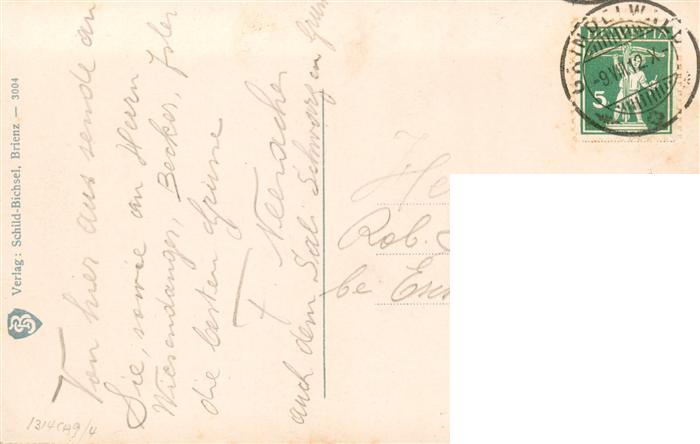 Verlag: Schild-Bichsel, Brienz — 3004
Von hier aus sende an
Sie, sowie an Herrn
Wiesendanger, Becker, Isler
die besten Grüsse
F. Neeracher
auch dem Sali Schwarzen
GRINDELWALD
-9.VIII.12.X
5
He
Rob.
be
1314CH9/4